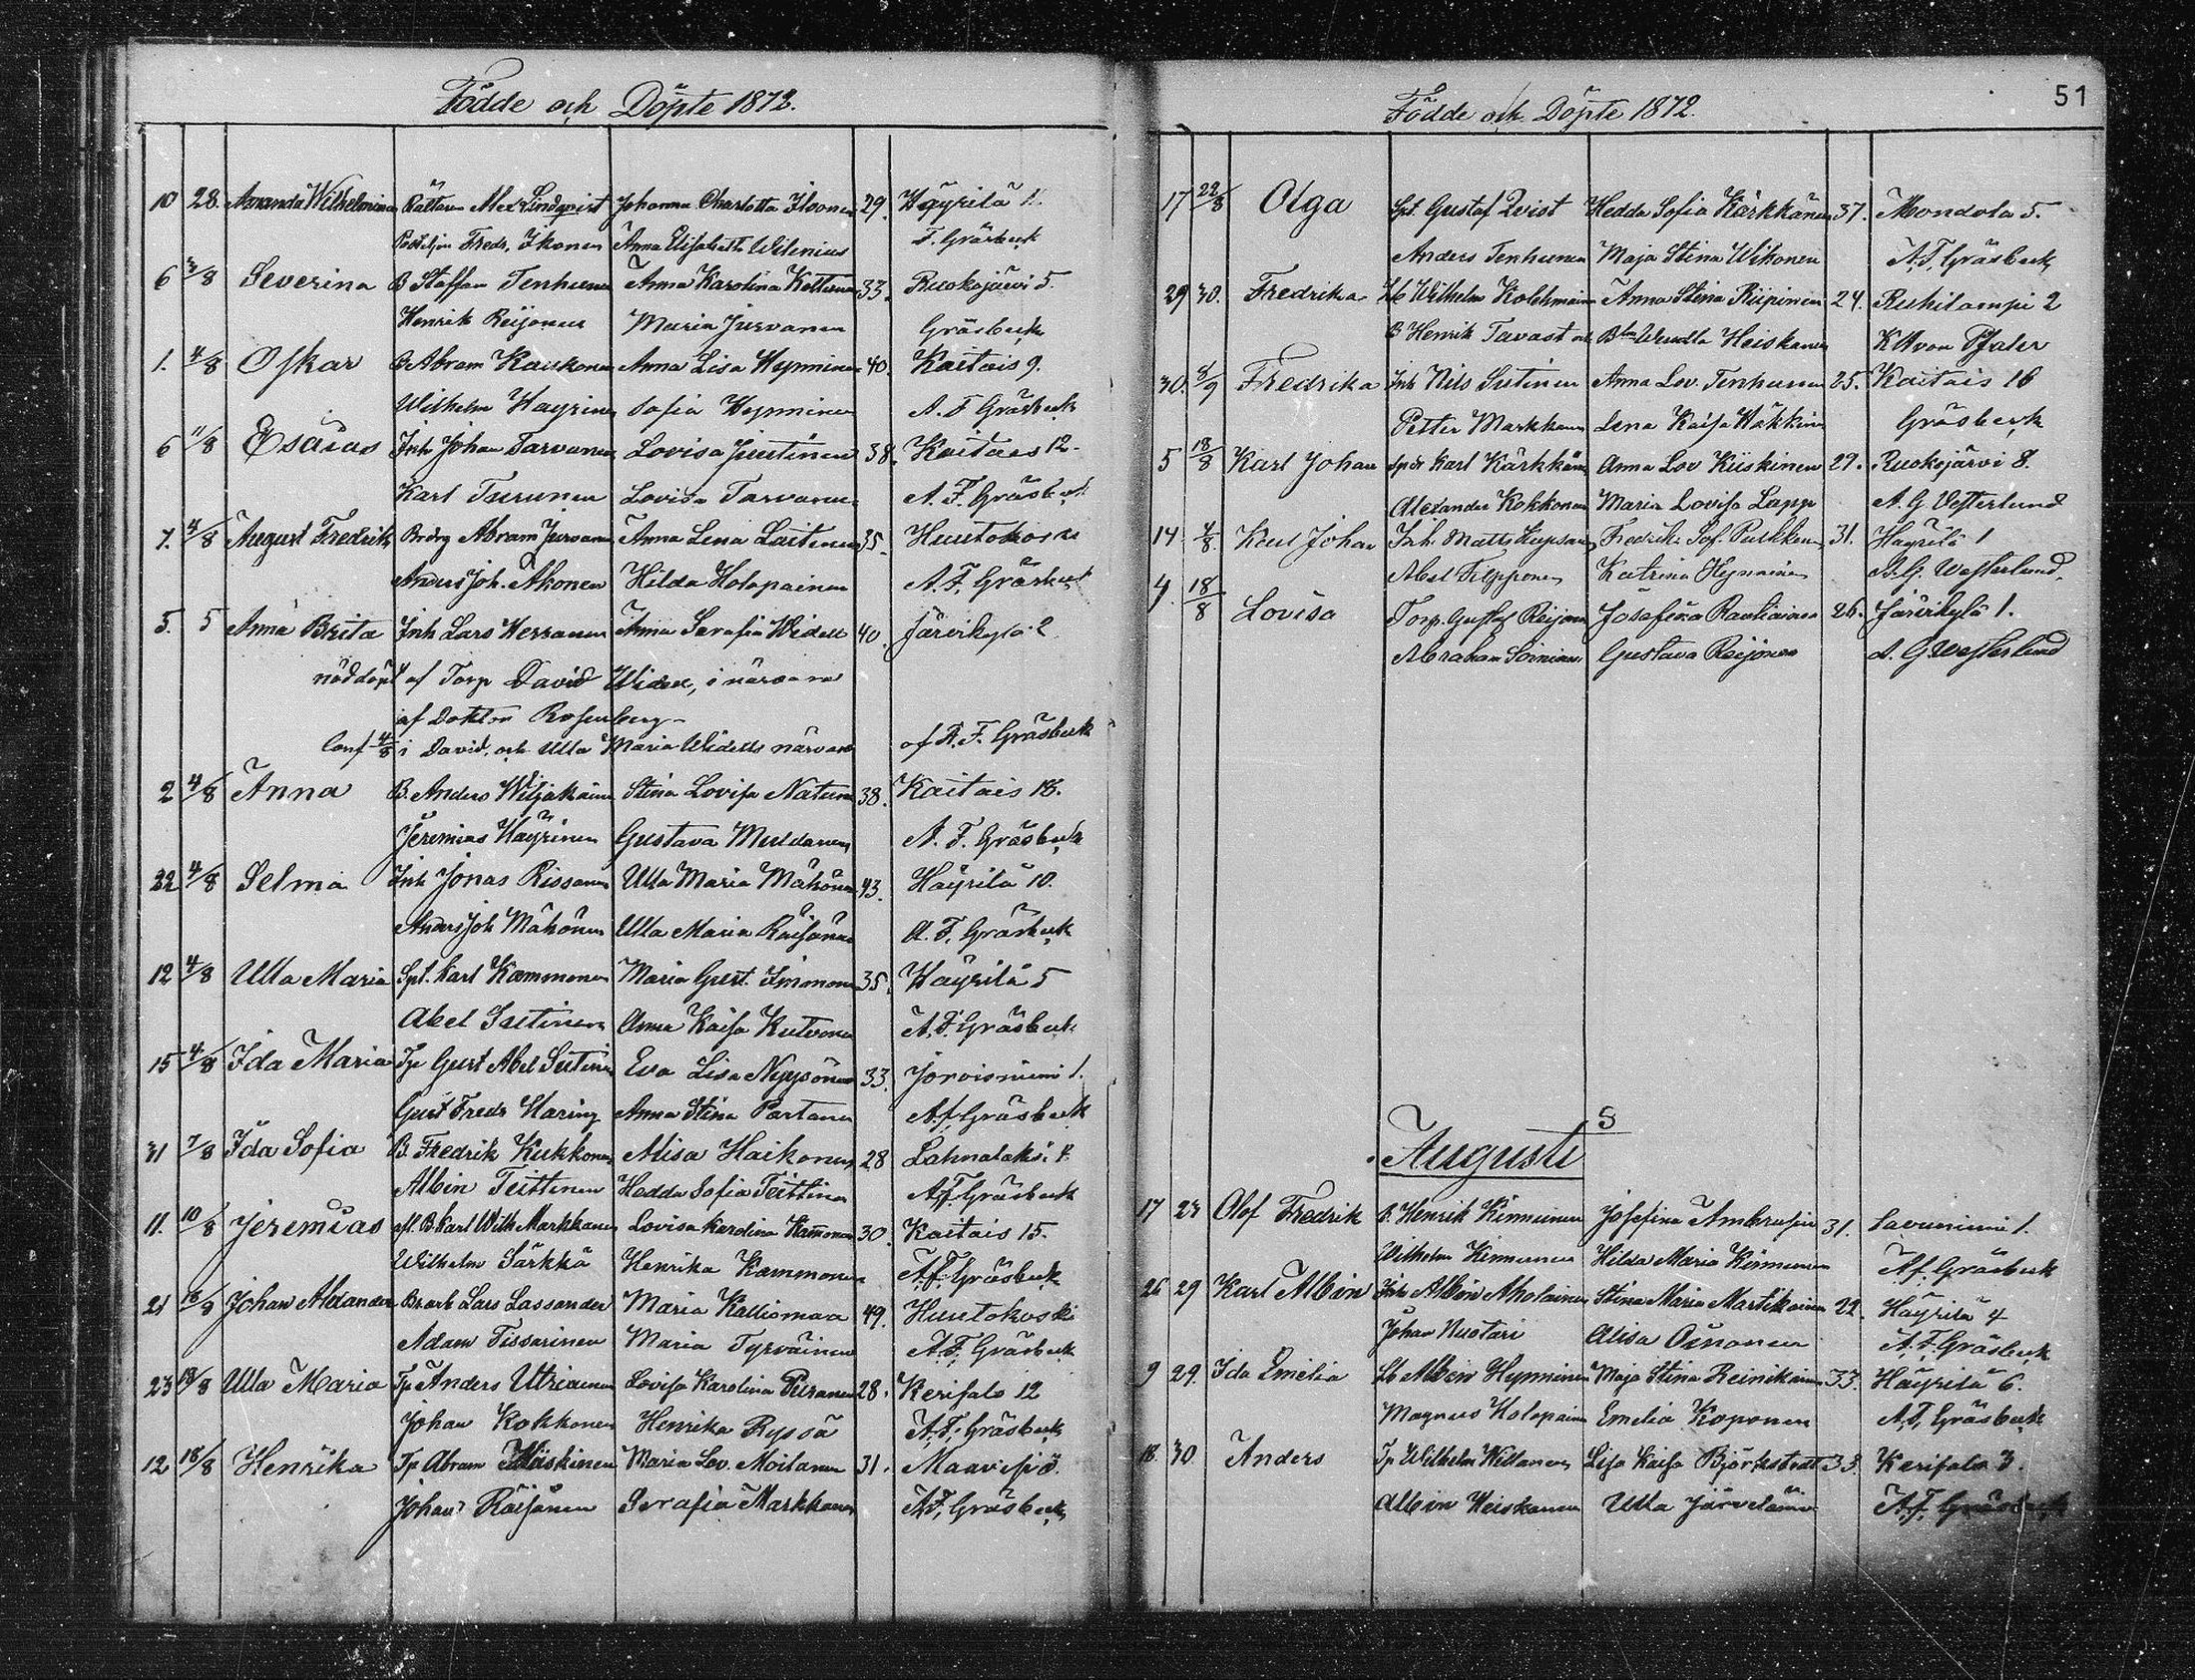 Födde och Döpte 1872.
10 28. Amanda Wilhelmina Rättaren Alex Lindqvist Johanna Charlotta Ikonen 29. Häyrilä 1.
Postiljon Fredr. Ikonen Anna Elisabeth Wilenius F. Gräsbeck
6 3/8 Severina B Staffan Tenhunen Anna Karolina Kettunen 33. Ruokojärvi 5.
Henrik Reijonen Maria Jurvanen Gräsbeck
1. 4/8 Oskar B Abram Kaiskonen Anna Lisa Hynninen 40. Kaitais 9.
Wilhelm Hayrinen Sofia Hynninen A. F Gräsbeck
6 11/8 Esaias Inh Johan Tarvanen Lovisa Juutinen 38. Kaitais 12.
Karl Turunen Lovisa Tarvanen A. F. Gräsbeck
7. 4/8 August Fredrik Brdrg Abram Jurvanen Anna Lena Laitinen 35. Huutokoski
Anders Joh. Ahonen Hilda Holopainen A. F. Gräsbeck
5. 5 Anna Brita Inh Lars Herranen Anna Serafia Widell 40. Järvikylä 2
nöddöpt af Torp David Widell, i närvaro
af Doktor Rosenberg
Conf 4/8 i David och Ulla Maria Widells närvaro af A. F. Gräsbeck
2 4/8 Anna B. Anders Wiljakainen Stina Lovisa Natunen 38. Kaitais 18.
Jeremias Häyrinen Gustava Muldanen A. F. Gräsbeck
22 4/8 Selma Inh Jonas Rissanen Ulla Maria Mähönen 43. Häyrilä 10.
Anders Joh Mähönen Ulla Maria Räisänen A. F. Gräsbeck
12 4/8 Ulla Maria Spt. Karl Kammonen Maria Gust. Immonen 35. Häyrilä 5
Abel Sutinen Anna Kaisa Kutvonen A. F. Gräsbeck
15 4/8 Ida Maria Tp Gust Abel Sutinen Eva Lisa Nyyssönen 33. Jorvisniemi 1.
Gust Fredr Haring Anna Stina Partanen A. f. Gräsbeck
31 7/8 Ida Sofia B. Fredrik Kukkonen Alisa Haikonen 28 Lahnalaks 4.
Albin Teittinen Hedda Sofia Teittinen A. F. Gräsbeck
11. 10/8 Jeremias Karl Wilh Markkanen Lovisa Karolina Kammonen 30. Kaitais 15.
Wilhelm Särkkä Henrika Kammonen A. f. Gräsbeck
21 18/8 Johan Alexander Br.arb Lars Lassander Maria Kalliomaa 49. Huutokoski
Adam Tissarinen Maria Tyrväinen A. F. Gräsbeck
23 18/8 Ulla Maria Tp Anders Utriainen Lovisa Karolina Piiranen 28. Kerisalo 12
Johan Kokkonen Henrika Ryssä A. F. Gräsbeck
12 18/8 Henrika Tp Abram Kiiskinen Maria Lov. Moilanen 31. Maavesi 3.
Johan Räisänen Serafia Markkanen A. F. Gräsbeck
Födde och Döpte 1872. 51
17 22/8 Olga Spt. Gustaf Qvist Hedda Sofia Kärkkänen 37. Mondola 5.
Anders Tenhunen Maja Stina Wihonen A. F. Gräsbeck
29 30. Fredrika Lb Wilhelm Kolehmainen Anna Stina Riipinen 24. Ruhilampi 2
B Henrik Tavast Wendla Heiskanen K H von Pfaler
30. 8/9 Fredrika Inh Nils Sutinen Anna Lov. Tenhunen 25. Kaitais 16
Petter Markkanen Lena Kaisa Häkkinen Gräsbeck
5 18/8 Karl Johan Spdr Karl Kärkkänen Anna Lov Kiiskinen 29. Ruokojärvi 8.
Alexander Kokkonen Maria Lovisa Lapp A. G Vesterlund
14. 4/8. Karl Johan Inh Matts Hupsanen Fredrika Sof. Pulkkinen 31. Häyrilä 1
Abel Filpponen Katrina Hynninen A. G. Westerlund.
4. 18/8 Lovisa Torp. Gustaf Reijonen Josefina Rautiainen 26. Järvikylä 1.
Abraham Soininen Gustava Reijonen A. G. Westerlund
Augusti
17 23 Olof Fredrik B. Henrik Kinnunen Josefina Ambrusin 31. Savuniemi 1.
Wilhelm Kinnunen Hilda Maria Kinnunen A. f. Gräsbeck
26 29 Karl Albin Inh Albin Aholainen Stina Maria Martikainen 22. Häyrilä 4
Johan Nustari Alisa Oinonen A. F. Gräsbeck
9 29. Ida Emelia Lb Albin Hynninen Maja Stina Reinikainen 33. Häyrilä 6.
Magnus Holopainen Emelia Koponen A. F. Gräsbeck
18. 30 Anders Tp Wilhelm Willanen Lisa Kaisa Björkstedt 33. Kerisalo 3.
Albin Heiskanen Ulla Järveläinen A. F. Gräsbeck